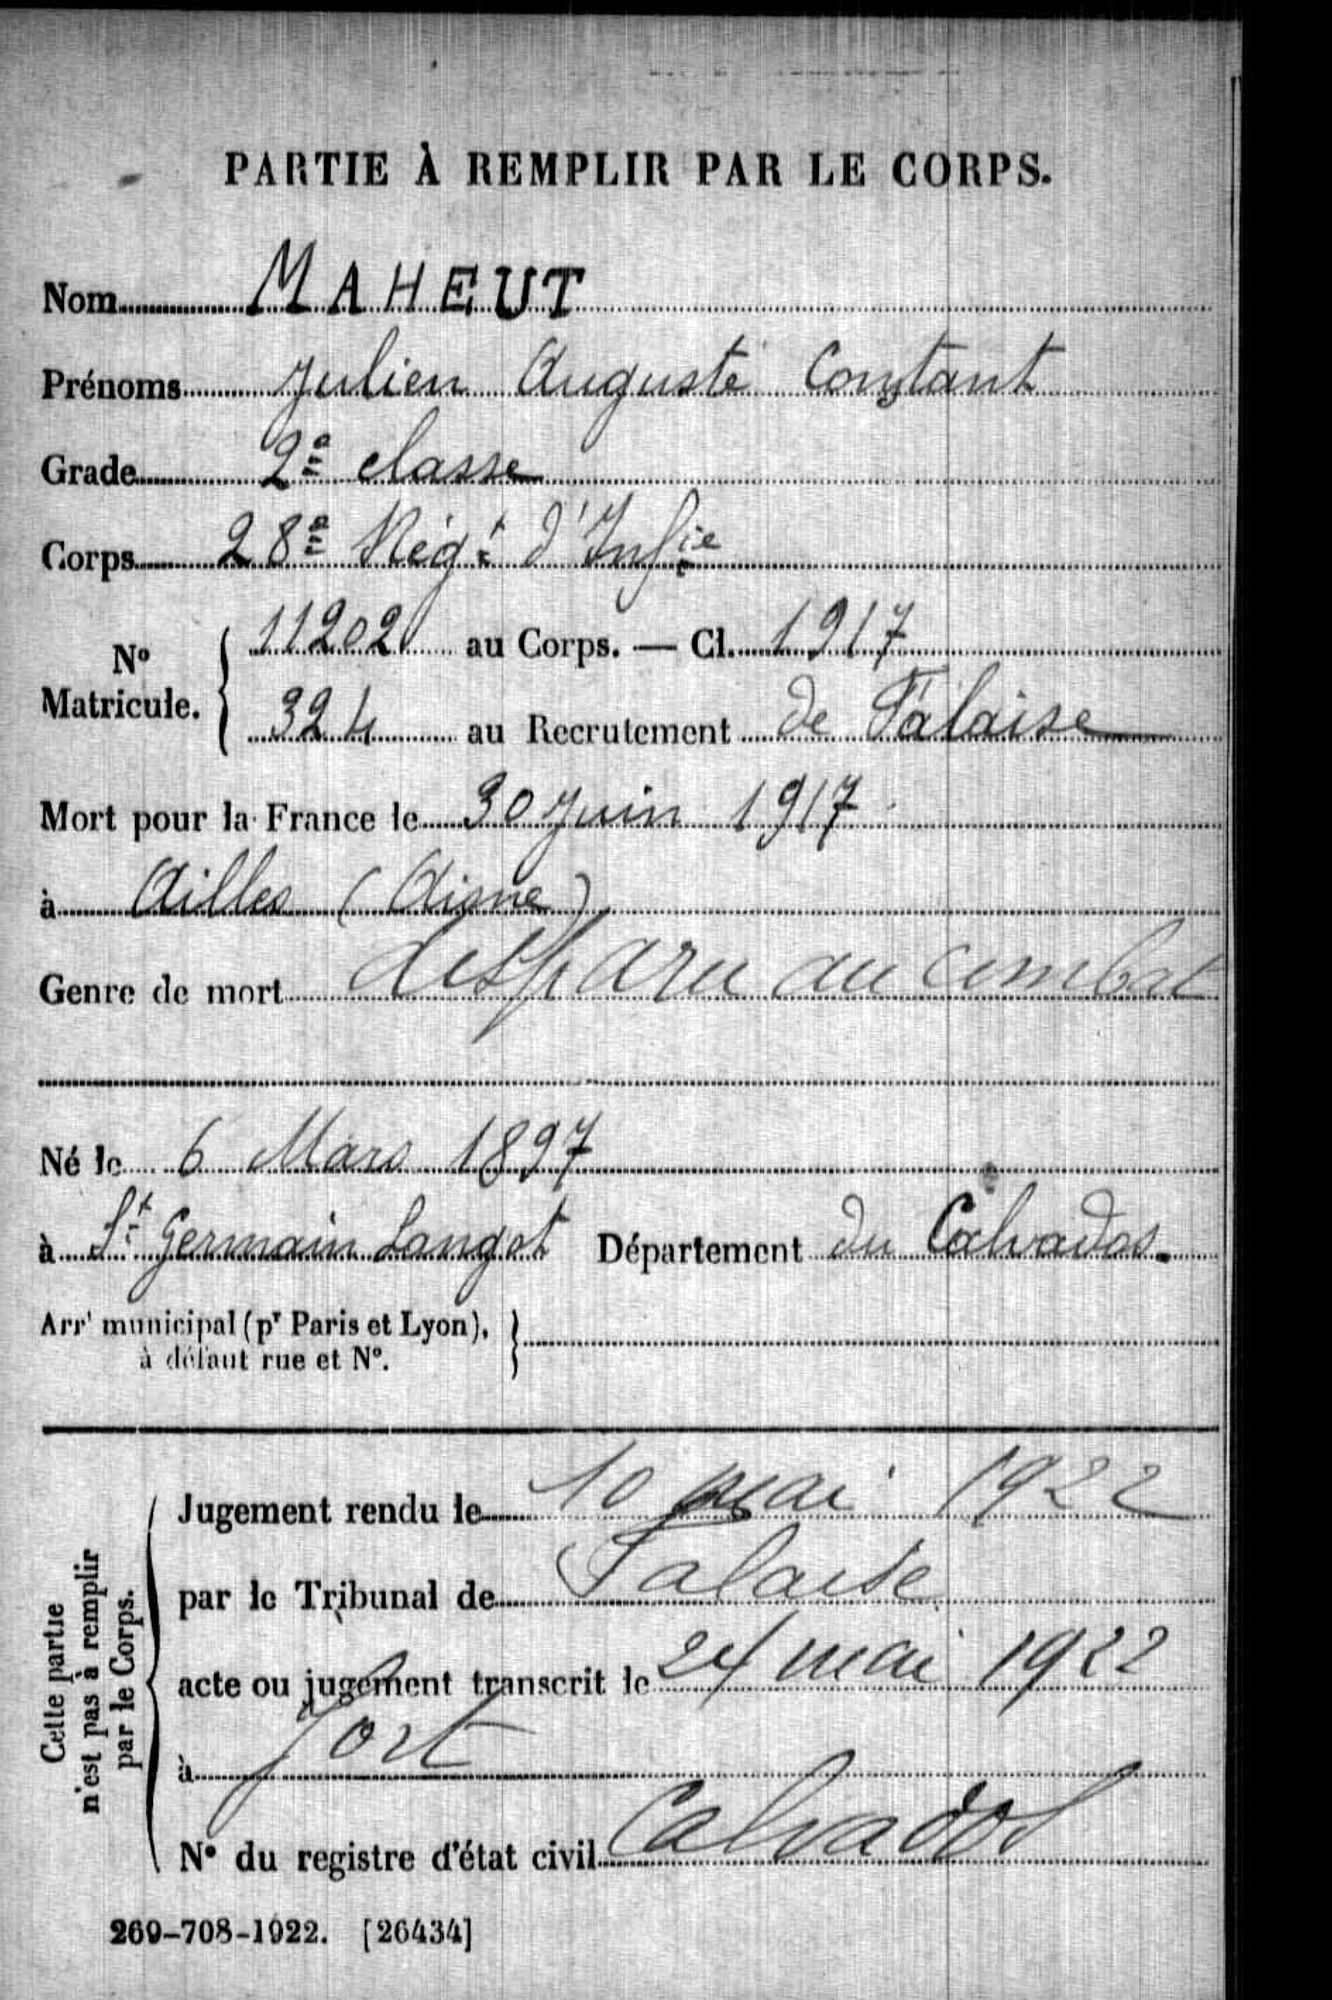 PARTIE À REMPLIR PAR LE CORPS.
Nom MAHEUT
Prénoms Julien Auguste Constant
Grade 2e classe
Corps 28e Régt d'Infie
No Matricule. { 11202 au Corps. — Cl. 1917
324 au Recrutement de Falaise
Mort pour la France le 30 Juin 1917
à Ailles (Aisne)
Genre de mort disparu au combat
Né le 6 Mars 1897
à St Germain Langot Département du Calvados.
Arrt municipal (pr Paris et Lyon), }
à défaut rue et No.
Cette partie
n'est pas à remplir
par le Corps.
Jugement rendu le 10 mai 1922
par le Tribunal de Falaise
acte ou jugement transcrit le 24 mai 1922
à Jort
No du registre d'état civil Calvados
269-708-1922. [26434]